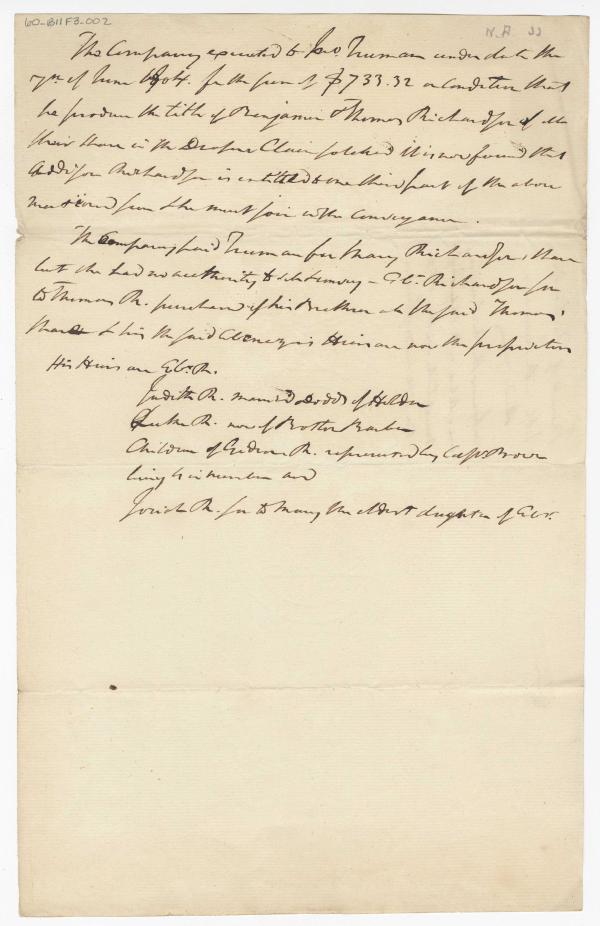 60-B11F3-002
N.A. 33
The Company executed to Jno. Truman under date the
7th of June 1804. for the sum of $733.32 on condition that
he produce the title of Benjamin & Thomas Richardson of
their share in the Claim it is now found that
Addison Richardson is entitled to one third part of the above
mentioned sum & he must join in the conveyance.
The Company paid Truman for Mary Richardson's share
but she had no authority to - Ebr. Richardson son
to Thomas R. purchased of his Brother the said Thomas'
share & his the said Ebenezer's Heirs are now the proprietors
His Heirs are Ebr. R.
Judith R. married Dodds of Holden
Luke R. now of
Children of Gideon R. represented by Capt. Brown
living 4 in number and
Josiah R. son to Mary the eldest daughter of Ebr.